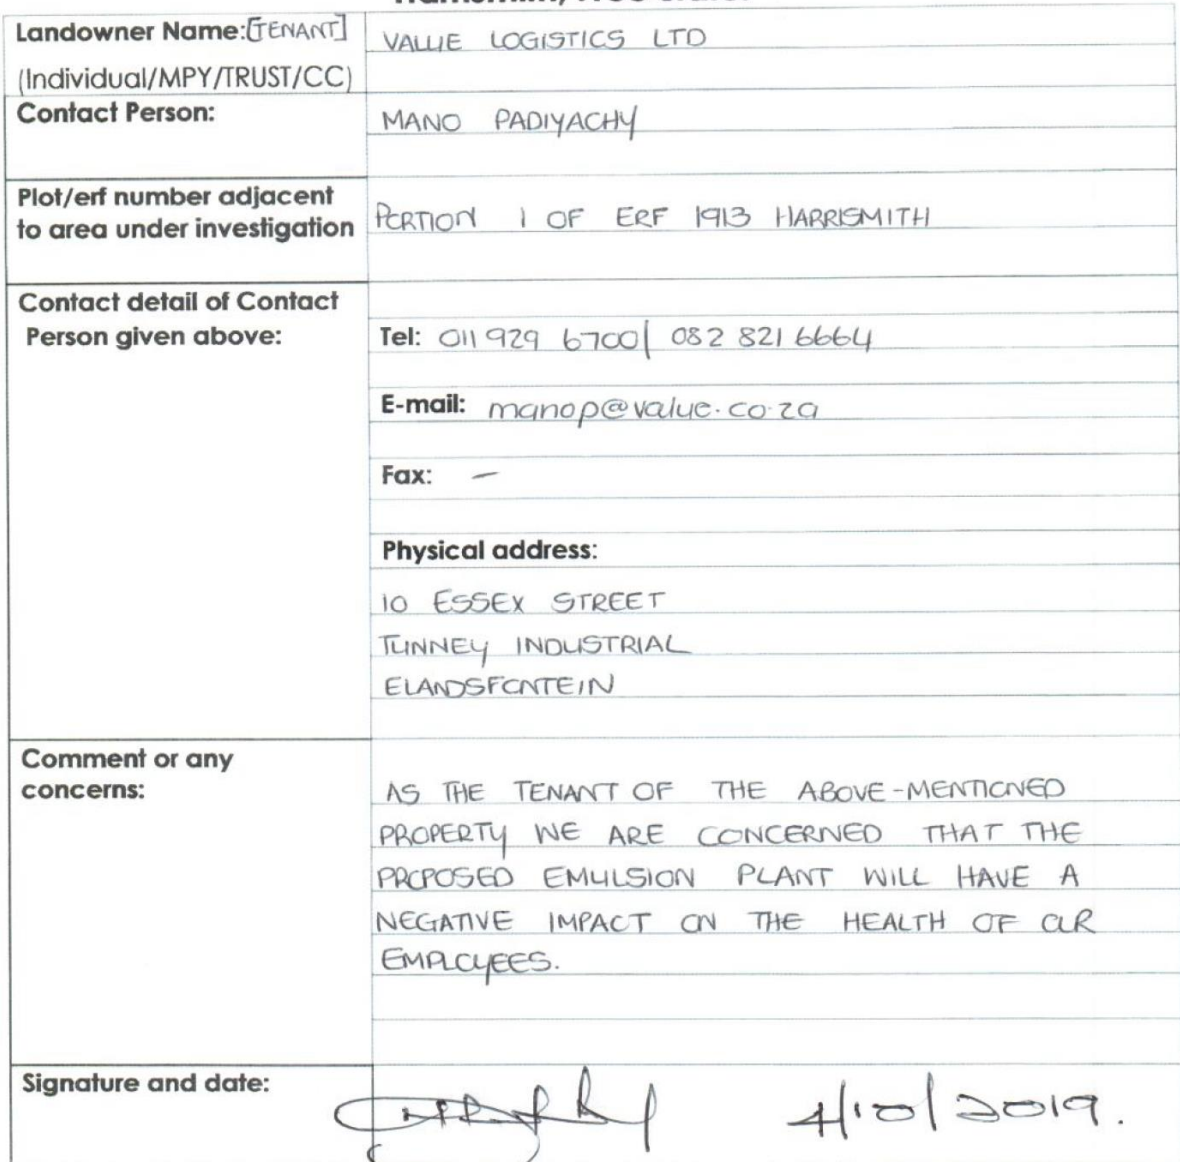 Landowner Name:[TENANT]
(Individual/MPY/TRUST/CC)
VALUE LOGISTICS LTD
Contact Person:
MANO PADIYACHY
Plot/erf number adjacent
to area under investigation
PORTION 1 OF ERF 1913 HARRISMITH
Contact detail of Contact
Person given above:
Tel: 011 929 6700| 082 821 6664
E-mail: manop@value.co.za
Fax: -
Physical address:
10 ESSEX STREET
TUNNEY INDUSTRIAL
ELANDSFONTEIN
Comment or any
concerns:
AS THE TENANT OF THE ABOVE-MENTIONED
PROPERTY WE ARE CONCERNED THAT THE
PROPOSED EMULSION PLANT WILL HAVE A
NEGATIVE IMPACT ON THE HEALTH OF OUR
EMPLOYEES.
Signature and date:
4/10/2019.